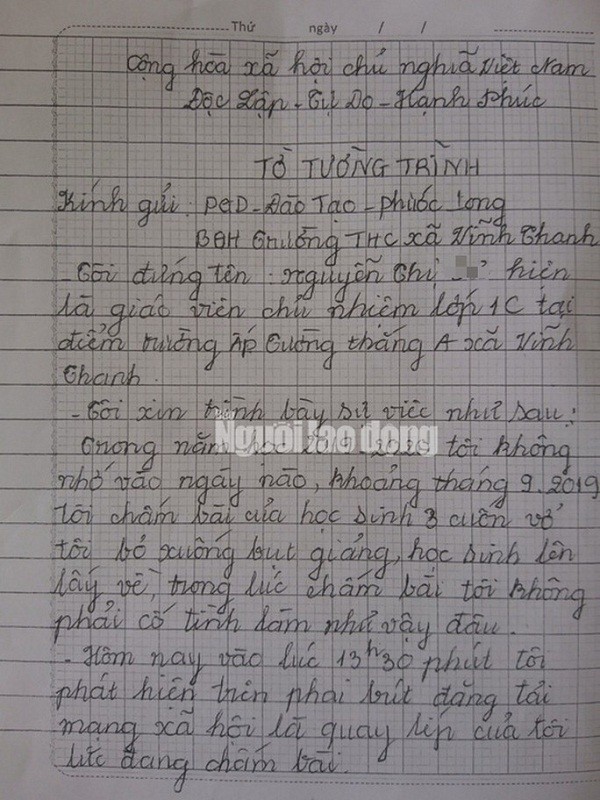 Thứ ngày / /
Cộng hòa xã hội chủ nghĩa Việt Nam
Độc Lập - Tự Do - Hạnh Phúc
TỜ TƯỜNG TRÌNH
Kính gửi: PGD - Đào Tạo - Phước Long
BGH Trường THC xã Vĩnh Thanh
- Tôi đứng tên: Nguyễn Thị hiện
là giáo viên chủ nhiệm lớp 1C tại
điểm trường Ấp Tường Thắng A xã Vĩnh
Thanh.
- Tôi xin trình bày sự việc như sau:
Người lao động
Trong năm học 2019-2020 tôi không
nhớ vào ngày nào, khoảng tháng 9.2019
tôi chấm bài của học sinh 3 cuốn vở
tôi bỏ xuống bục giảng, học sinh lên
lấy về, trong lúc chấm bài tôi không
phải cố tình làm như vậy đâu.
- Hôm nay vào lúc 13h30 phút tôi
phát hiện trên phai bút đăng tải
mạng xã hội là quay líp của tôi
lúc đang chấm bài.